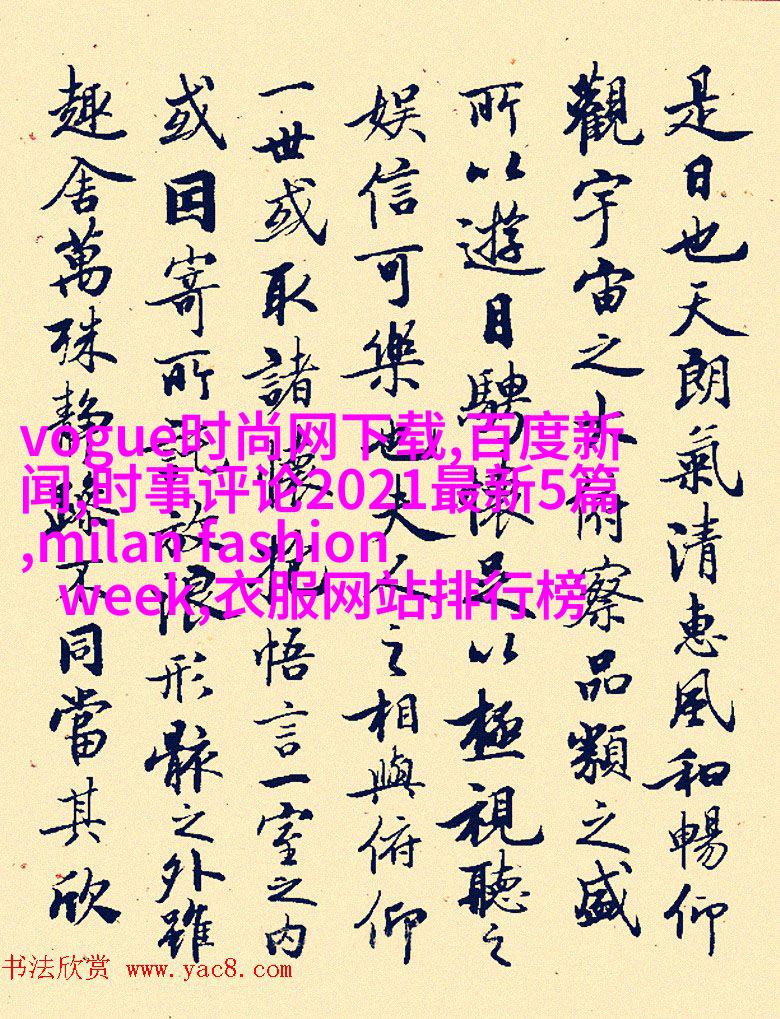 是日也天朗氣清惠風和暢仰
觀宇宙之大俯察品類之盛
所以遊目騁懷足以極視聽之
娱信可樂也夫人之相與俯仰
一世或取諸懷抱悟言一室之内
或因寄所託放浪形骸之外雖
趣舍萬殊静躁不同當其欣
vogue时尚网下载,百度新
闻,时事评论2021最新5篇
,milan fashion
week,衣服网站排行榜
书法欣赏 www.yac8.com